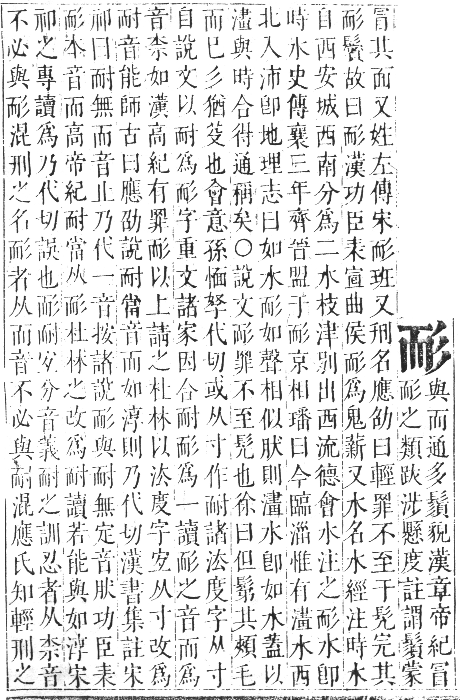 耏
與而通多鬚貌漢章帝紀冒
耏之類跋涉懸度註謂鬚蒙
冒其面又姓左傳宋耏班又刑名應劭曰輕罪不至于髡完其
耏鬢故曰耏漢功臣表宣曲侯耏爲鬼薪又水名水經注時水
自西安城西南分爲二水枝津別出西流德會水注之耏水卽
時水史傳襄三年齊晉盟于耏京相璠曰今臨淄惟有澅水西
北入沛卽地理志曰如水耏如聲相似肰則澅水卽如水蓋以
澅與時合得通稱矣〇說文耏罪不至髡也徐曰但鬄其頰毛
而已彡猶也會意孫愐孥代切或从寸作耐諸法度字从寸
自說文以耐爲耏字重文諸家因合耐耏爲一讀耏之音而爲
音柰如漢高紀有罪耏以上請之杜林以法度字宐从寸改爲
耐音能師古曰應劭說耐當音而如淳則乃代切漢書集註宋
祁曰耐無而音止乃代一音按諸說耏與耐無定音肰功臣表
耏本音而高帝紀耐當从耏杜林之改爲耐讀若能與如淳宋
祁之專讀爲乃代切誤也耏耐宐分音義耐之訓忍者从柰音
不必與耏混刑之名耏者从而音不必與耐混應氏知輕刑之